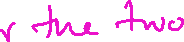 r the two